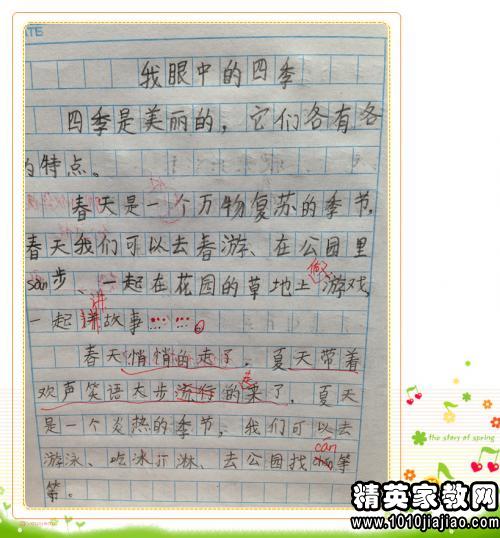 DATE
我眼中的四季
四季是美丽的，它们各有各
的特点。
春天是一个万物复苏的季节，
春天我们可以去春游、在公园里
sàn步、一起在花园的草地上做游戏
一起讲故事……。
春天悄悄的走了，夏天带着
欢声笑语大步流行的来了，夏天
是一个炎热的季节，我们可以去
游泳、吃冰淇淋、去公园找can等
等。
the story of spring
精英家教网
www.1010jiajiao.com